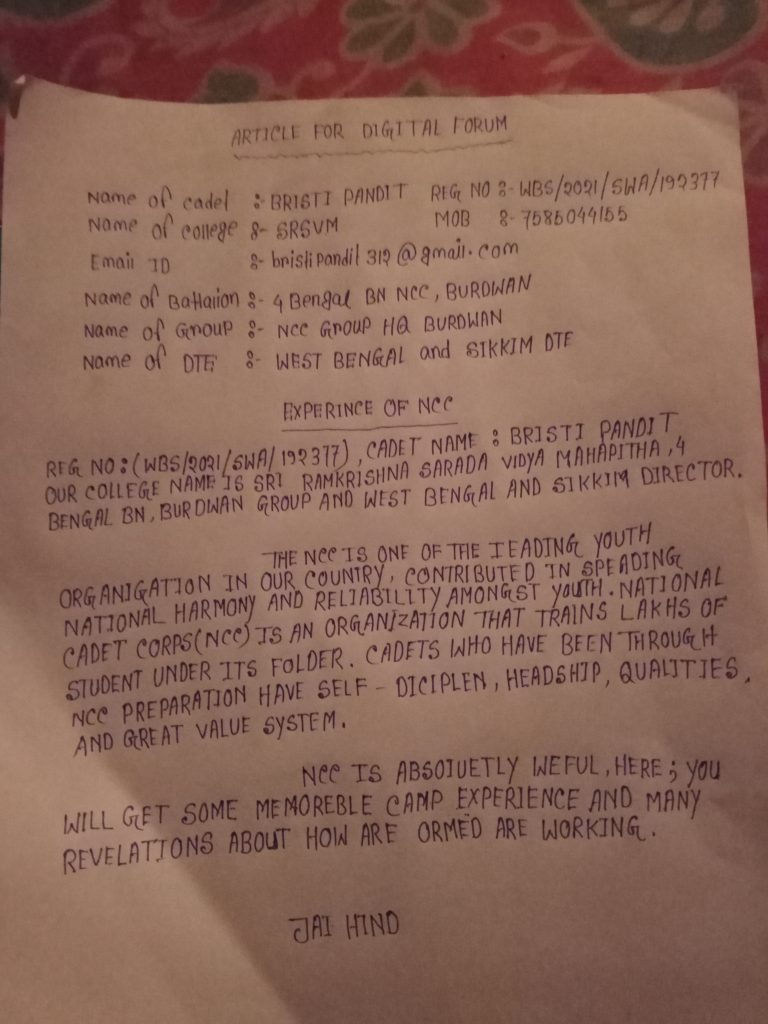 ARTICLE FOR DIGITAL FORUM
Name of cadel :- BRISTI PANDIT REG NO :- WBS/2021/SWA/192377
Name of college :- SRSVM MOB :- 7585044155
Email ID :- bristipandit312@gmail.com
Name of Battalion :- 4 Bengal BN NCC, BURDWAN
Name of Group :- NCC Group HQ BURDWAN
Name of DTE :- WEST BENGAL and SIKKIM DTE
EXPERINCE OF NCC
REG NO : (WBS/2021/SWA/192377), CADET NAME : BRISTI PANDIT
OUR COLLEGE NAME IS SRI RAMKRISHNA SARADA VIDYA MAHAPITHA, 4
BENGAL BN, BURDWAN GROUP AND WEST BENGAL AND SIKKIM DIRECTOR.
THE NCC IS ONE OF THE IEADING YOUTH
ORGANIGATION IN OUR COUNTRY, CONTRIBUTED IN SPEADING
NATIONAL HARMONY AND RELIABILITY AMONGST YOUTH. NATIONAL
CADET CORPS(NCC) IS AN ORGANIZATION THAT TRAINS LAKHS OF
STUDENT UNDER ITS FOLDER. CADETS WHO HAVE BEEN THROUGH
NCC PREPARATION HAVE SELF - DICIPLEN, HEADSHIP, QUALITIES,
AND GREAT VALUE SYSTEM.
NCC IS ABSOIUETLY WEFUL, HERE; YOU
WILL GET SOME MEMOREBLE CAMP EXPERIENCE AND MANY
REVELATIONS ABOUT HOW ARE ORMED ARE WORKING.
JAI HIND